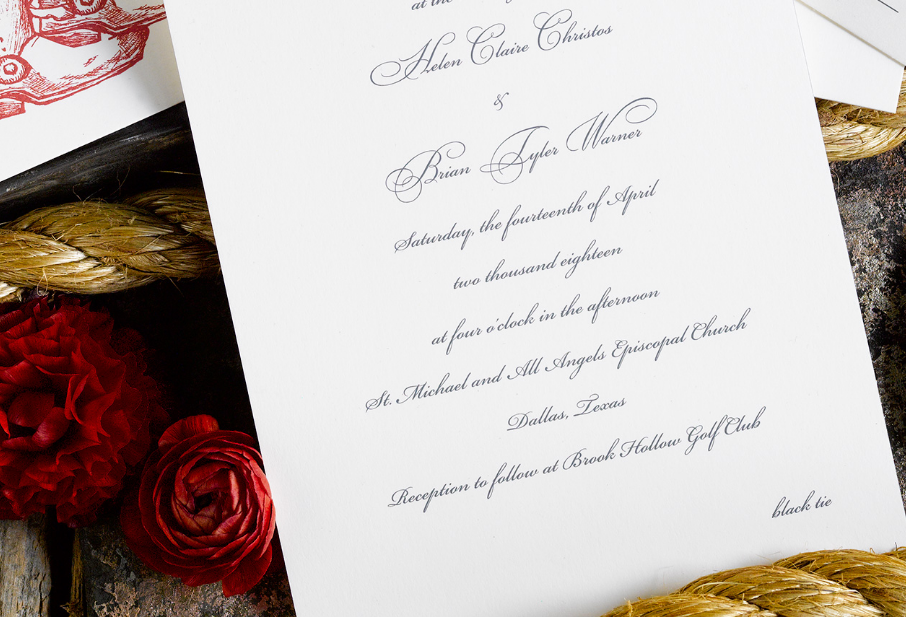 at the
Helen Claire Christos
&
Brian Tyler Warner
Saturday, the fourteenth of April
two thousand eighteen
at four o'clock in the afternoon
St. Michael and All Angels Episcopal Church
Dallas, Texas
Reception to follow at Brook Hollow Golf Club
black tie